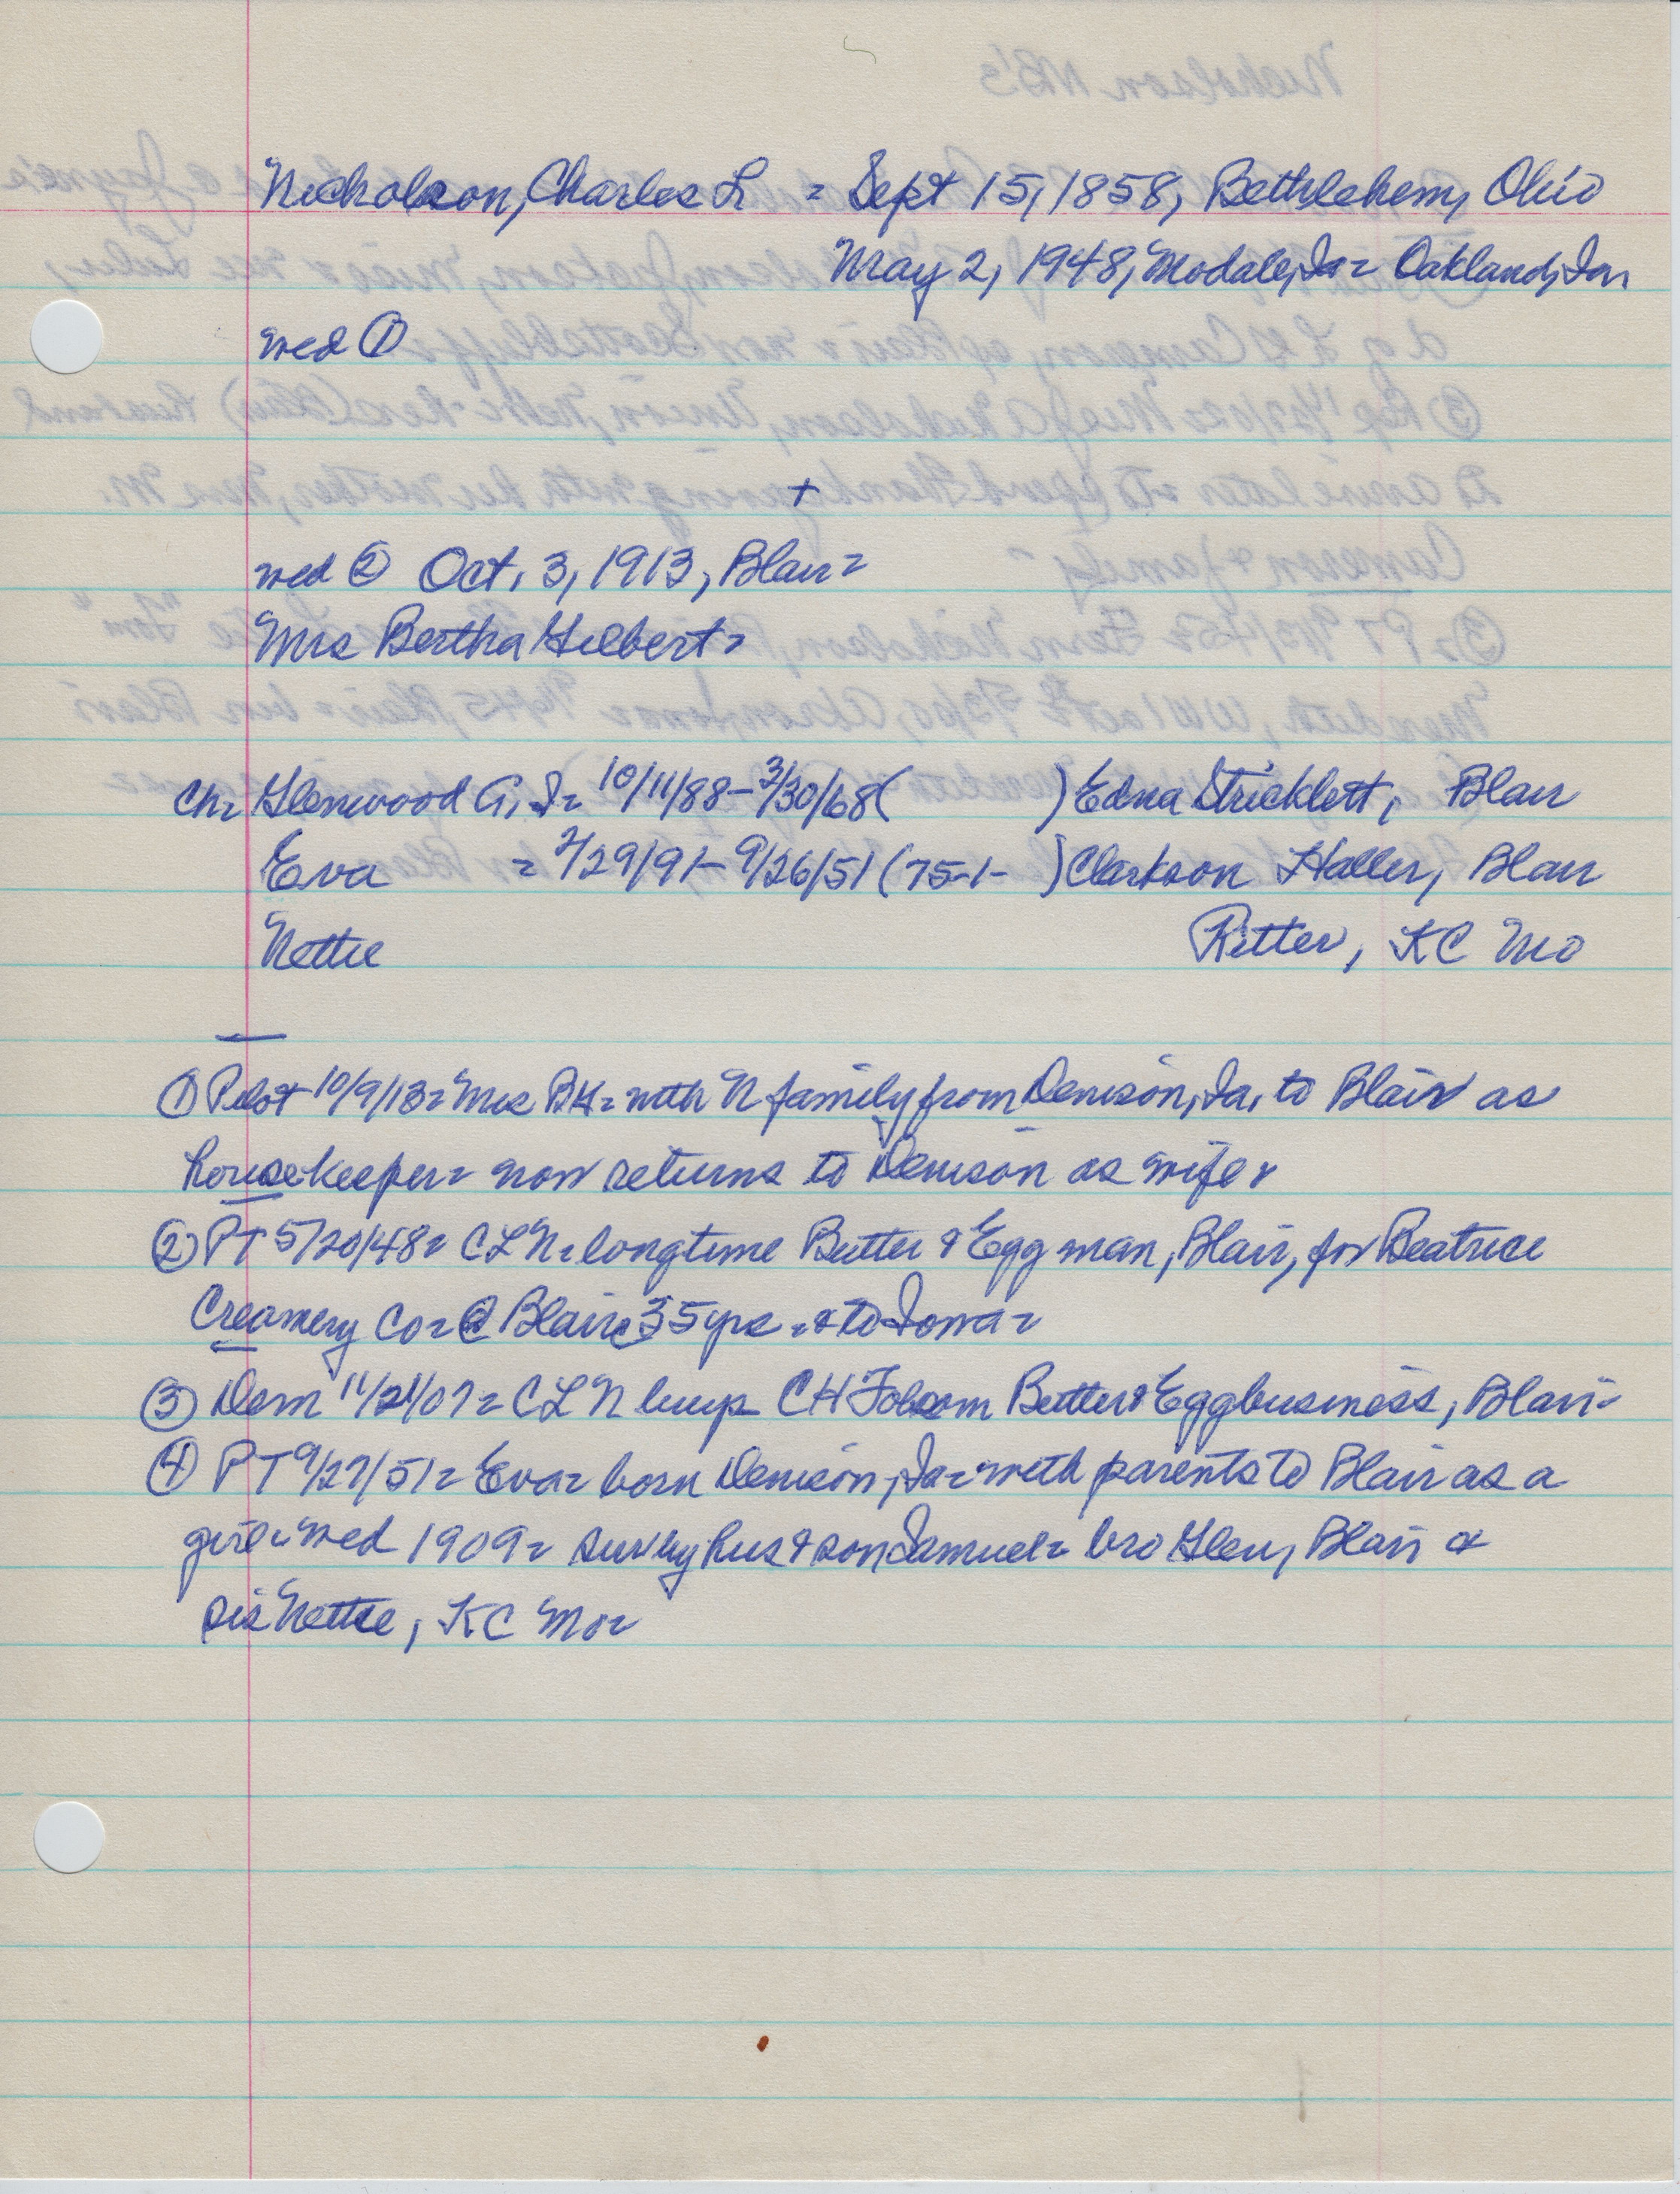 Nicholson, Charles L = Sept 15, 1858, Bethlehem, Ohio
May 2, 1948, Modale, Ia = Oakland, Ia,
wed ①
+
wed ② Oct. 3, 1913, Blair =
Mrs Bertha Hilbert =
Ch = Glenwood G, I = 10/11/88 - 3/30/68 ( ) Edna Stricklett, Blair
Eva = 2/29/91 - 9/26/51 (75-1- ) Clarkson Haller, Blair
Nettie Ritter, KC Mo
① Pilot 10/9/13 = Mrs BH = with N family from Denison, Ia, to Blair as
housekeeper = now returns to Denison as wife =
② PT 5/20/48 = CLN = longtime Butter & Egg man, Blair, for Beatrice
Creamery Co = @ Blair c 35 yrs = & to Iowa =
③ Dem 11/21/07 = CLN buys CH Folsom Butter & Egg business, Blair =
④ PT 9/27/51 = Eva = born Denison, Ia = with parents to Blair as a
girl = wed 1909 = surv by hus & son Samuel = bro Glen, Blair &
sis Nettie, KC Mo =